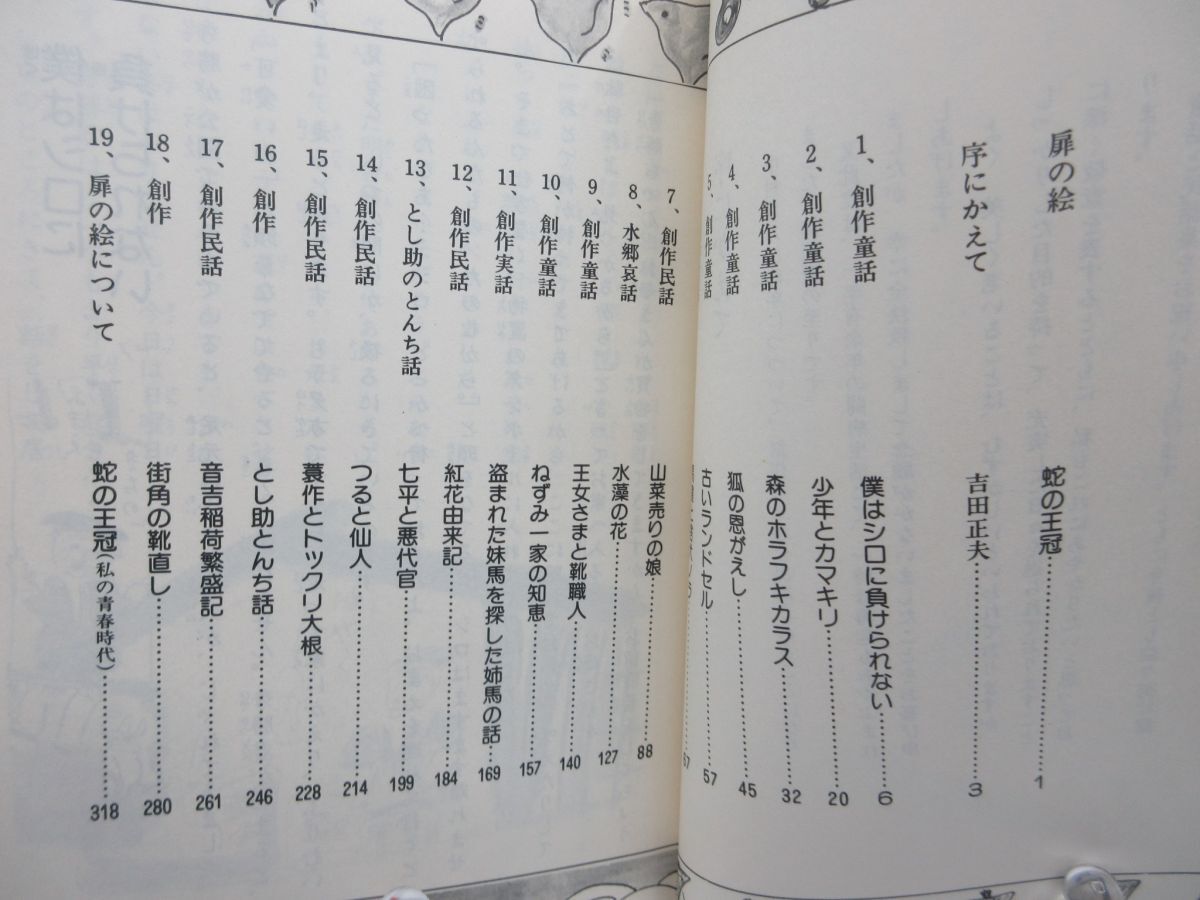 扉の絵 蛇の王冠………1
序にかえて 吉田正夫………3
1、創作童話 僕はシロに負けられない………6
2、創作童話 少年とカマキリ………20
3、創作童話 森のホラフキカラス………32
4、創作童話 狐の恩がえし………45
5、創作童話 古いランドセル………57
67
7、創作民話 山菜売りの娘………88
8、水郷哀話 水藻の花………127
9、創作童話 王女さまと靴職人………140
10、創作童話 ねずみ一家の知恵………157
11、創作実話 盗まれた妹馬を探した姉馬の話………169
12、創作民話 紅花由来記………184
13、とし助のとんち話 七平と悪代官………199
14、創作民話 つると仙人………214
15、創作民話 蓑作とトックリ大根………228
16、創作 とし助とんち話………246
17、創作民話 音吉稲荷繁盛記………261
18、創作 街角の靴直し………280
19、扉の絵について 蛇の王冠(私の青春時代)………318